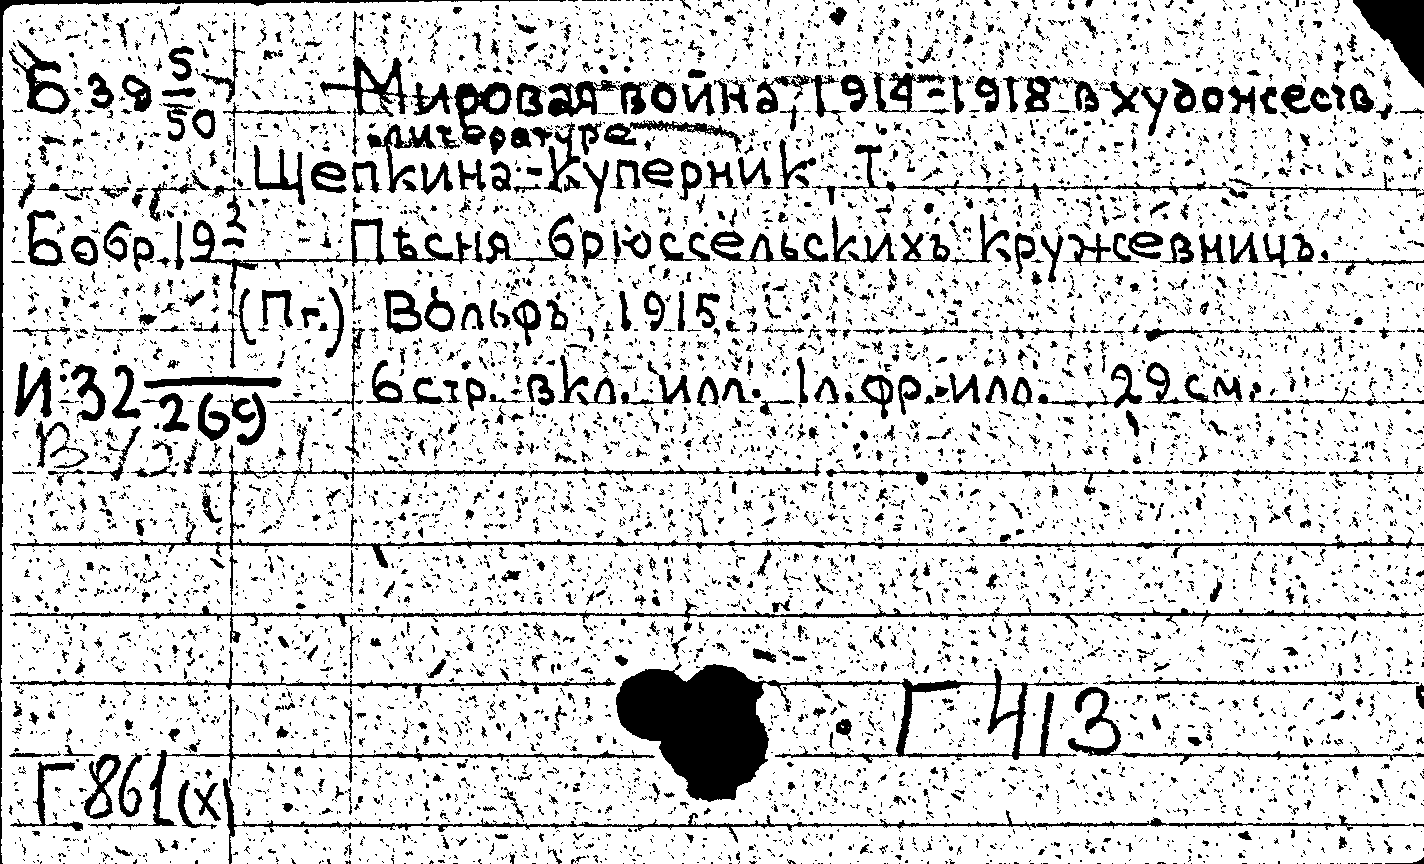 Б 39 5/50 Мировая война, 1914-1918 в художеств.
литературе.
Щепкина-Куперник, Т.
Бобр. 19 2/ Пѣсня брюссельскихъ кружевницъ.
(Пг.), Вольфъ, 1915.
И 32/269 6 стр. вкл. илл. 1 л. фр.-илл. 29 см.
Г 413
Г 861(х)